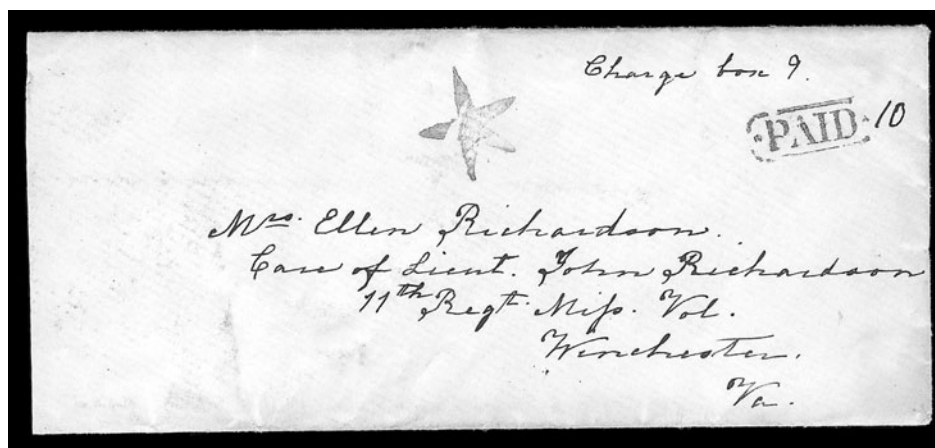 Charge box 9.
PAID 10
Mrs. Ellen Richardson.
Care of Lieut. John Richardson
11th Regt. Miſs. Vol.
Winchester.
Va.